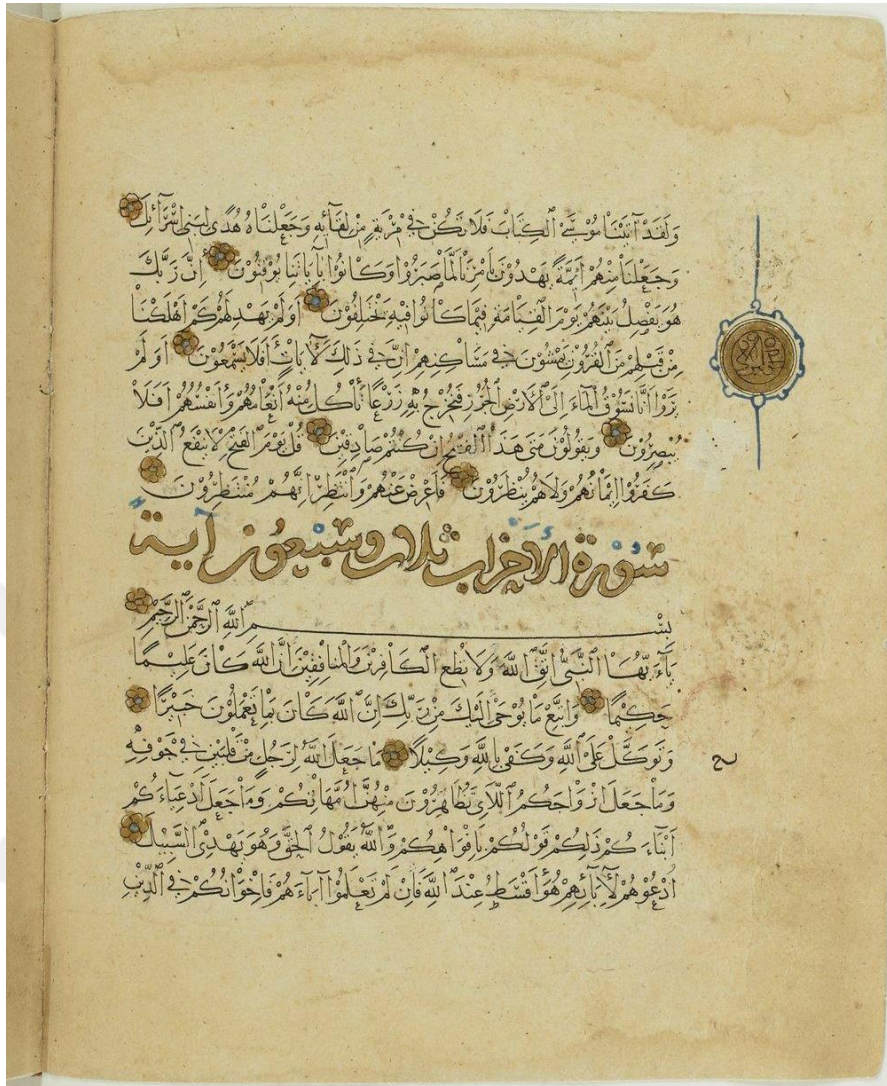 وَلَقَدْ آتَيْنَا مُوسَى ٱلْكِتَابَ فَلَا تَكُنْ فِي مِرْيَةٍ مِنْ لِقَآئِهِ وَجَعَلْنَاهُ هُدًى لِبَنِي إِسْرَآئِيلَ
وَجَعَلْنَا مِنْهُمْ أَئِمَّةً يَهْدُونَ بِأَمْرِنَا لَمَّا صَبَرُوا وَكَانُوا بِآيَاتِنَا يُوقِنُونَ إِنَّ رَبَّكَ
هُوَ يَفْصِلُ بَيْنَهُمْ يَوْمَ ٱلْقِيَامَةِ فِيمَا كَانُوا فِيهِ يَخْتَلِفُونَ أَوَلَمْ يَهْدِ لَهُمْ كَمْ أَهْلَكْنَا
مِنْ قَبْلِهِمْ مِنَ ٱلْقُرُونِ يَمْشُونَ فِي مَسَاكِنِهِمْ إِنَّ فِي ذَلِكَ لَآيَاتٍ أَفَلَا يَسْمَعُونَ أَوَلَمْ
يَرَوْا أَنَّا نَسُوقُ ٱلْمَآءَ إِلَى ٱلْأَرْضِ ٱلْجُرُزِ فَنُخْرِجُ بِهِ زَرْعًا تَأْكُلُ مِنْهُ أَنْعَامُهُمْ وَأَنْفُسُهُمْ أَفَلَا
يُبْصِرُونَ وَيَقُولُونَ مَتَى هَذَا ٱلْفَتْحُ إِنْ كُنْتُمْ صَادِقِينَ قُلْ يَوْمَ ٱلْفَتْحِ لَا يَنْفَعُ ٱلَّذِينَ
كَفَرُوا إِيمَانُهُمْ وَلَا هُمْ يُنْظَرُونَ فَأَعْرِضْ عَنْهُمْ وَٱنْتَظِرْ إِنَّهُمْ مُنْتَظِرُونَ
سُورَةُ الأَحْزَابِ ثَلَاثٌ وَسَبْعُونَ آيَةً
بِسْمِ ٱللَّهِ ٱلرَّحْمَنِ ٱلرَّحِيمِ
يَآءَيُّهَا ٱلنَّبِيُّ ٱتَّقِ ٱللَّهَ وَلَا تُطِعِ ٱلْكَافِرِينَ وَٱلْمُنَافِقِينَ إِنَّ ٱللَّهَ كَانَ عَلِيمًا
حَكِيمًا وَٱتَّبِعْ مَا يُوحَى إِلَيْكَ مِنْ رَبِّكَ إِنَّ ٱللَّهَ كَانَ بِمَا تَعْمَلُونَ خَبِيرًا
وَتَوَكَّلْ عَلَى ٱللَّهِ وَكَفَى بِٱللَّهِ وَكِيلًا مَا جَعَلَ ٱللَّهُ لِرَجُلٍ مِنْ قَلْبَيْنِ فِي جَوْفِهِ
وَمَا جَعَلَ أَزْوَاجَكُمُ ٱللَّائِي تُظَاهِرُونَ مِنْهُنَّ أُمَّهَاتِكُمْ وَمَا جَعَلَ أَدْعِيَآءَكُمْ
أَبْنَآءَكُمْ ذَلِكُمْ قَوْلُكُمْ بِأَفْوَاهِكُمْ وَٱللَّهُ يَقُولُ ٱلْحَقَّ وَهُوَ يَهْدِي ٱلسَّبِيلَ
ٱدْعُوهُمْ لِآبَآئِهِمْ هُوَ أَقْسَطُ عِنْدَ ٱللَّهِ فَإِنْ لَمْ تَعْلَمُوا آبَآءَهُمْ فَإِخْوَانُكُمْ فِي ٱلدِّينِ